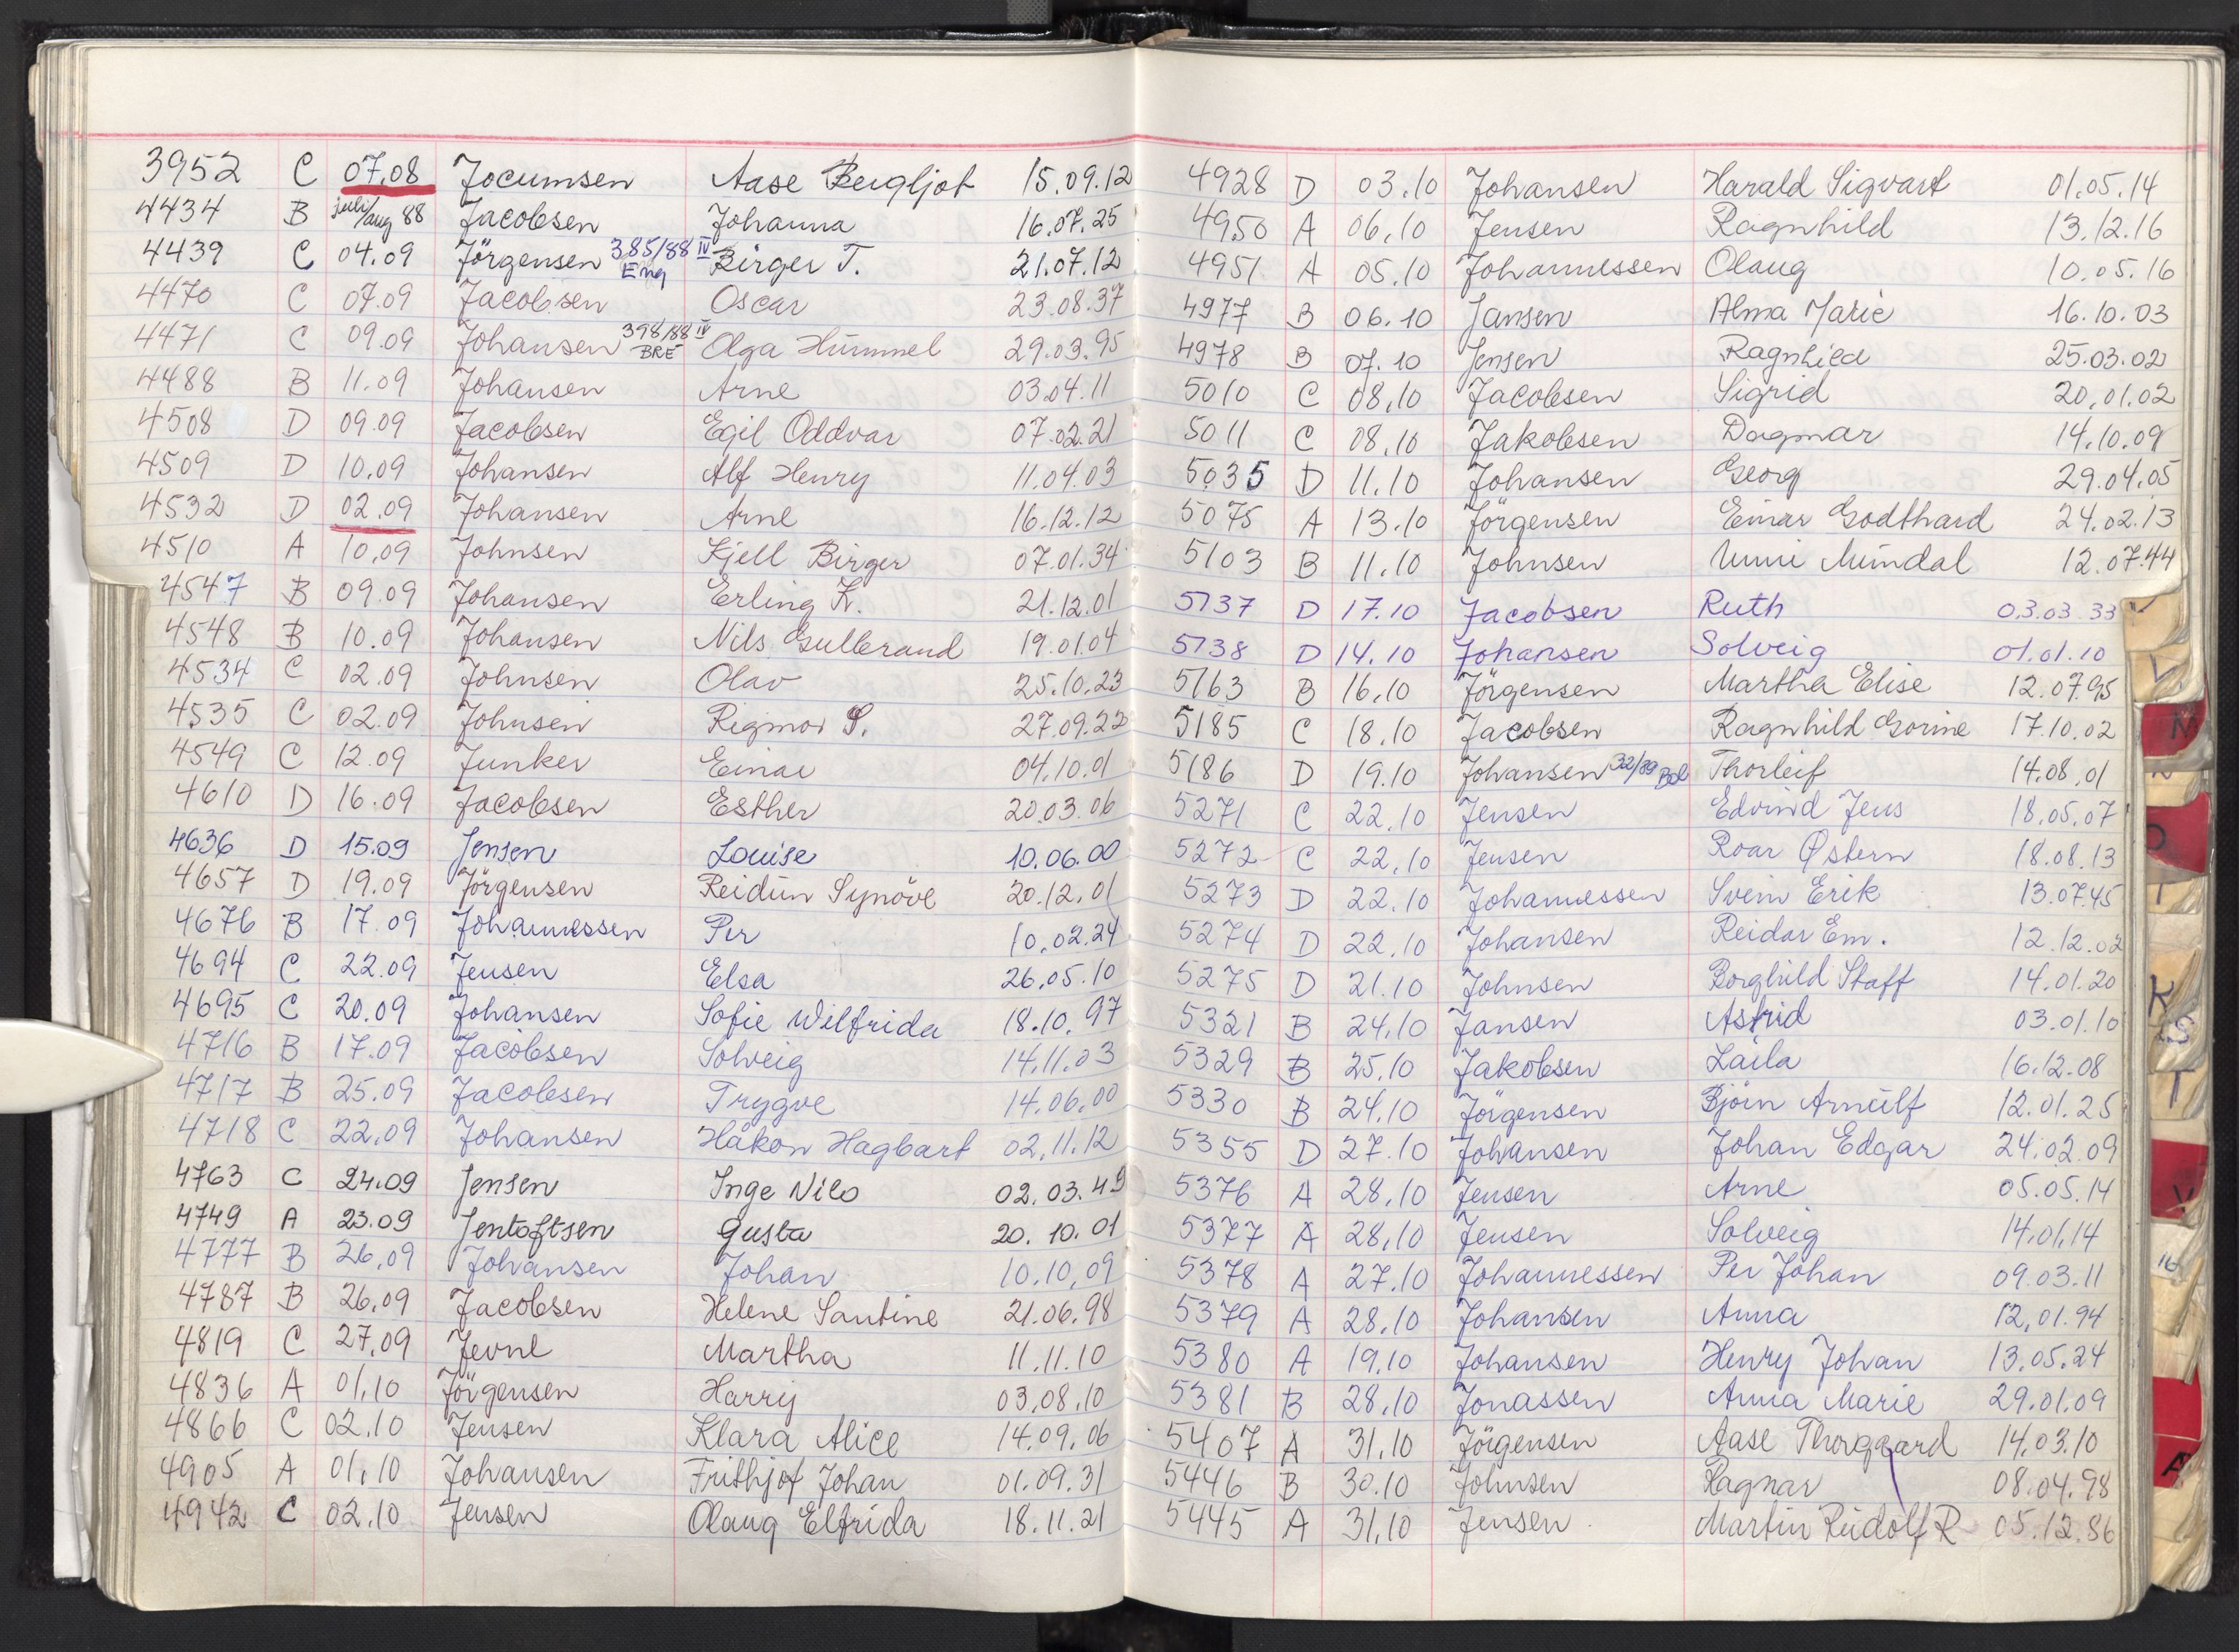 3952 C 07.08 Jocumsen Aase Bergljot 15.09.12
4434 B juli/aug 88 Jacobsen Johanna 16.07.25
4439 C 04.09 Jörgensen 385/88 IV Eng Birger T. 21.07.12
4470 C 07.09 Jacobsen Oscar 23.08.37
4471 C 09.09 Johansen 398/88 IV BRE Olga Hummel 29.03.95
4488 B 11.09 Johansen Arne 03.04.11
4508 D 09.09 Jacobsen Egil Oddvar 07.02.21
4509 D 10.09 Johansen Alf Henry 11.04.03
4532 D 02.09 Johansen Arne 16.12.12
4510 A 10.09 Johnsen Kjell Birger 07.01.34
4547 B 09.09 Johansen Erling K. 21.12.01
4548 B 10.09 Johansen Nils Gulbrand 19.01.04
4534 C 02.09 Johnsen Olav 25.10.23
4535 C 02.09 Johnsen Rigmor S. 27.09.22
4549 C 12.09 Junker Einar 04.10.01
4610 D 16.09 Jacobsen Esther 20.03.06
4636 D 15.09 Jensen Louise 10.06.00
4657 D 19.09 Jörgensen Reidun Synöve 20.12.01
4676 B 17.09 Johannessen Per 10.02.24
4694 C 22.09 Jensen Elsa 26.05.10
4695 C 20.09 Johansen Sofie Wilfrida 18.10.97
4716 B 17.09 Jacobsen Solveig 14.11.03
4717 B 25.09 Jacobsen Trygve 14.06.00
4718 C 22.09 Johansen Håkon Hagbart 02.11.12
4763 C 24.09 Jensen Inge Nilo 02.03.49
4749 A 23.09 Jentoftsen Gusta 20.10.01
4777 B 26.09 Johansen Johan 10.10.09
4787 B 26.09 Jacobsen Helene Santine 21.06.98
4819 C 27.09 Jevne Martha 11.11.10
4836 A 01.10 Jörgensen Harry 03.08.10
4866 C 02.10 Jensen Klara Alice 14.09.06
4905 A 01.10 Johansen Frithjof Johan 01.09.31
4942 C 02.10 Jensen Olaug Elfrida 18.11.21
4928 D 03.10 Johansen Harald Sigvart 01.05.14
4950 A 06.10 Jensen Ragnhild 13.12.16
4951 A 05.10 Johannessen Olaug 10.05.16
4977 B 06.10 Jansen Alma Marie 16.10.03
4978 B 07.10 Jensen Ragnhild 25.03.02
5010 C 08.10 Jacobsen Sigrid 20.01.02
5011 C 08.10 Jakobsen Dagmar 14.10.09
5035 D 11.10 Johansen Georg 29.04.05
5075 A 13.10 Jörgensen Einar Godthard 24.02.13
5103 B 11.10 Johnsen Unni Mundal 12.07.44
5137 D 17.10 Jacobsen Ruth 03.03.33
5138 D 14.10 Johansen Solveig 01.01.10
5163 B 16.10 Jörgensen Martha Elise 12.07.95
5185 C 18.10 Jacobsen Ragnhild Gorine 17.10.02
5186 D 19.10 Johansen 32/89 Bol Thorleif 14.08.01
5271 C 22.10 Jensen Edvind Jens 18.05.07
5272 C 22.10 Jensen Roar Østern 18.08.13
5273 D 22.10 Johannessen Svein Erik 13.07.45
5274 D 22.10 Johansen Reidar Em. 12.12.02
5275 D 21.10 Johnsen Borghild Staff 14.01.20
5321 B 24.10 Jansen Astrid 03.01.10
5329 B 25.10 Jakobsen Laila 16.12.08
5330 B 24.10 Jörgensen Björn Arnulf 12.01.25
5355 D 27.10 Johansen Johan Edgar 24.02.09
5376 A 28.10 Jensen Arne 05.05.14
5377 A 28.10 Jensen Solveig 14.01.14
5378 A 27.10 Johannessen Per Johan 09.03.11
5379 A 28.10 Johansen Anna 12.01.94
5380 A 19.10 Johansen Henry Johan 13.05.24
5381 B 28.10 Jonassen Anna Marie 29.01.09
5407 A 31.10 Jörgensen Aase Thorgaard 14.03.10
5446 B 30.10 Johnsen Ragnar 08.04.98
5445 A 31.10 Jensen Martin Rudolf R 05.12.86